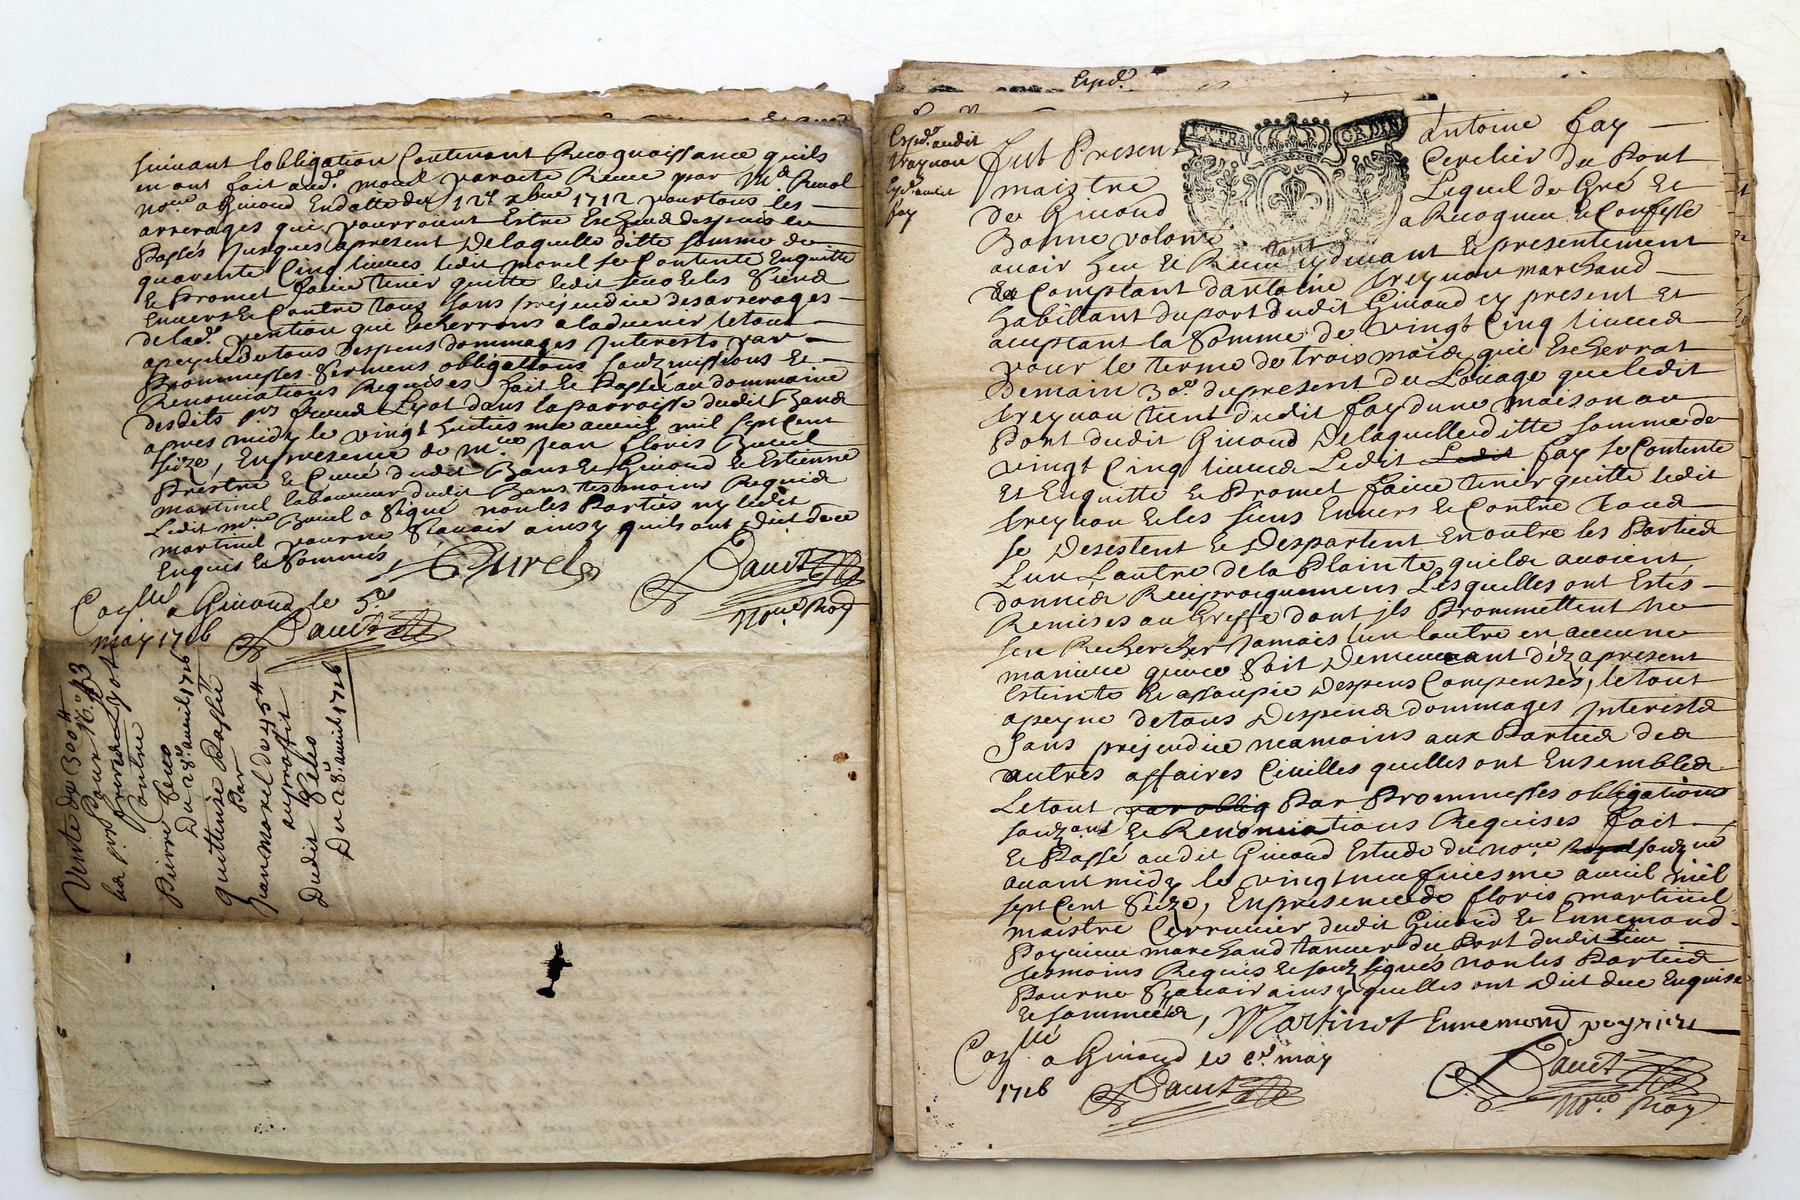 suivant lobligation Contenant Recognoissance quils
en ont fait aud. morel par acte Receu par Me
nore a Givord En datte du 12e xbre 1712 pour tous les
arrerages qui pourroient Estre Escheus despuis le
Passés Jusques apresent De laquelle ditte somme de
quarente Cinq livres ledit morel se Contente Enquitte
Et Promet faire tenir quitte ledit et les siens
Envers Et Contre tous sans prejudice des arrerages
de lad. pention qui Escherrons a laduenir letout
apeyne de tous Despens dommages Interests par
Prommesses sermens obligations Soubzmissions Et
Renonciations Requises fait Et Passé au dommaine
desdits frerea Lyot dans la parroisse dudit
apres midy le vingt huitiesme avril mil sept Cent
seize, En presence de mre Jean floris
Prestre Et Curé dudit Et Givord Et Estienne
martinel laboureur dudit tesmoins Requis
Ledit mre a signé non les Parties ny ledit
martinel pour ne scavoir ainsy quils ont Dict de ce
Enquis Et Sommés
Collé a Givord le 5e
may 1716
Nore Roy
Vente de 300 #
Pour
les frerea Lyot
Contre
Pierre
Du 28e avril 1716
quittance Passée
Par
Jean morel de 45 #
au proffit
Dudit
Du 28e avril 1716
Expd.
Expd. audit
Freynon
Expd. audit
fay
EXTRA ORDIN
fut Present Antoine fay
maistre Cerclier du Port
de Givord Lequel de Gré Et
Bonne volonté a Recogneu Et Confessé
avoir heu Et Receu cydevant Et presentement
Comptant dantoine freynon marchand
habittant du port dudit Givord cy present Et
acceptant la somme de vingt Cinq livres
pour le terme de trois mois qui Escherrat
Demain 30e du present du Louage que ledit
freynon tient dudit fay dune maison au
Port dudit Givord De laquelle ditte somme de
vingt Cinq livres Ledit Ledit fay se Contente
Et Enquitte Et Promet faire tenir quitte ledit
freynon Et les siens Envers Et Contre tous
se Desistent Et Despartent En outre les Parties
Lun Lautre de la Plainte quiles avoient
donnés Reciproquement Lesquelles ont Estés
Remises au Greffe dont jls Prommettent Ne
sen Rechercher Jamais lun lautre en aucune
maniere que ce soit Demeurant déz apresent
Esteinte Et assoupie Despens Compensés, le tout
apeyne de tous Despens dommages Interests
Sans prejudice neamoins aux Parties des
autres affaires Civilles quelles ont Ensembles
Letout par oblig Par Prommesses obligations
soubz Et Renonciations Requises fait
Et Passé audit Givord Estude du nore soubzné
avant midy le vingt neufviesme avril mil
sept Cent seize, En presence de floris martinel
maistre Cerrurier dudit Givord Et Ennemond
marchand tanneur du Port dudit Lieu
tesmoins Requis Et soubzsignés non les Parties
Pour ne Scavoir ainsy quelles ont Dict de ce Enquise
Et sommées, Martinel Ennemond
Collé a Givord le may
1716
Nore Roy